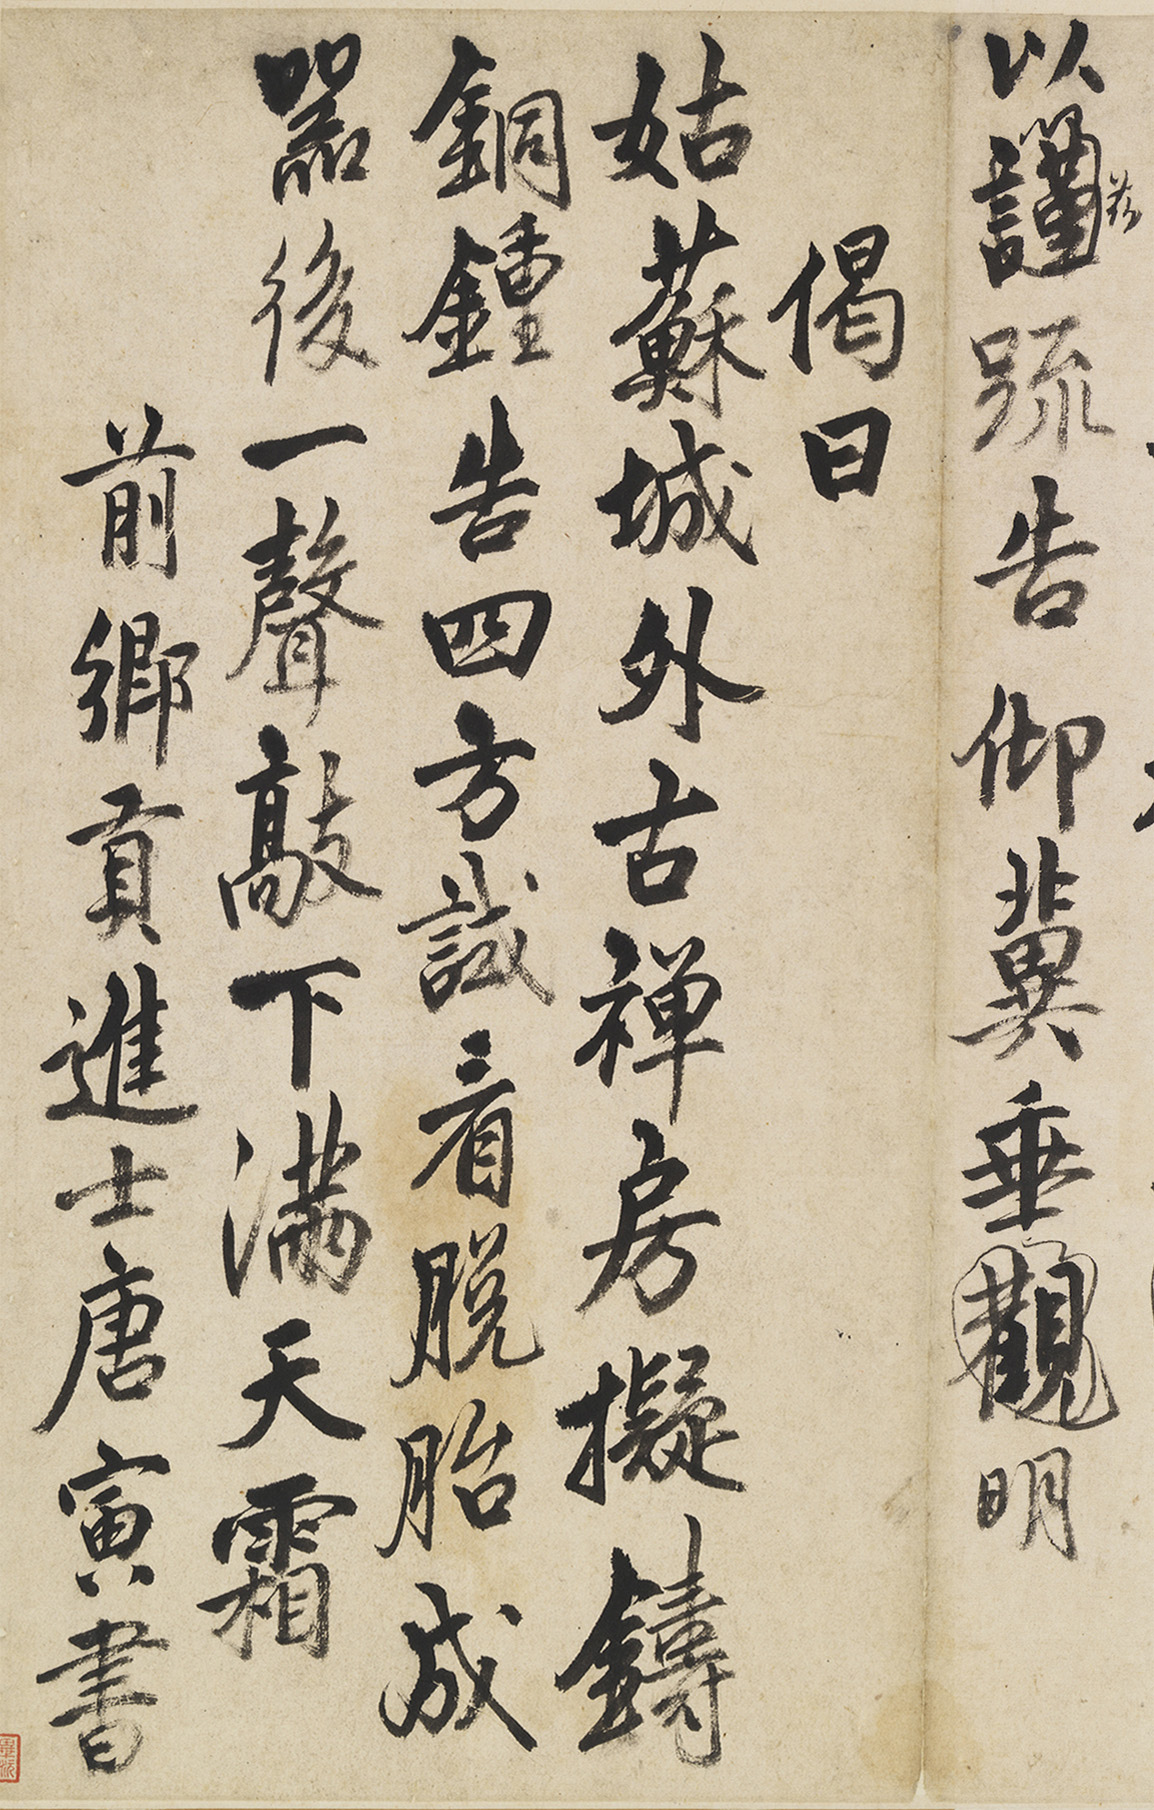 以謹疏告仰冀垂觀明
茲
偈曰
姑蘇城外古禪房擬鑄
銅鍾告四方試看脫胎成
器後一聲敲下滿天霜
前鄉貢進士唐寅書